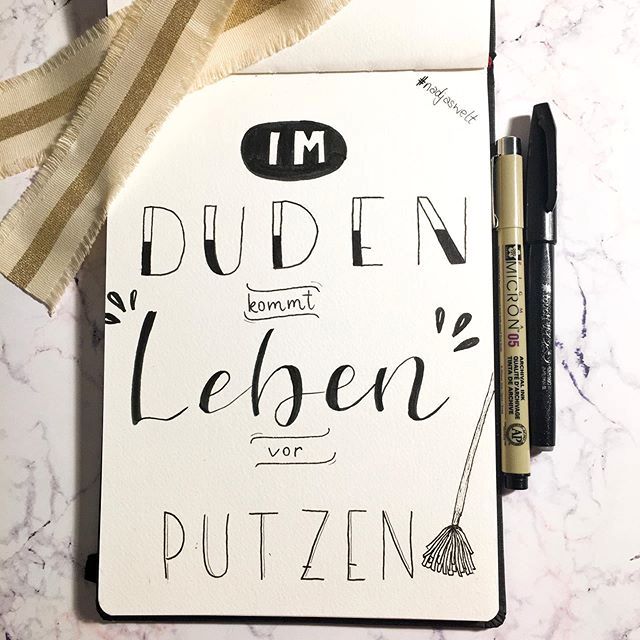 #nadjaswelt
IM
DUDEN
kommt
Leben
vor
PUTZEN
PIGMA
MICRON 05
ARCHIVAL INK
QUALITÉ D'ARCHIVAGE
TINTA DE ARCHIVE
AP